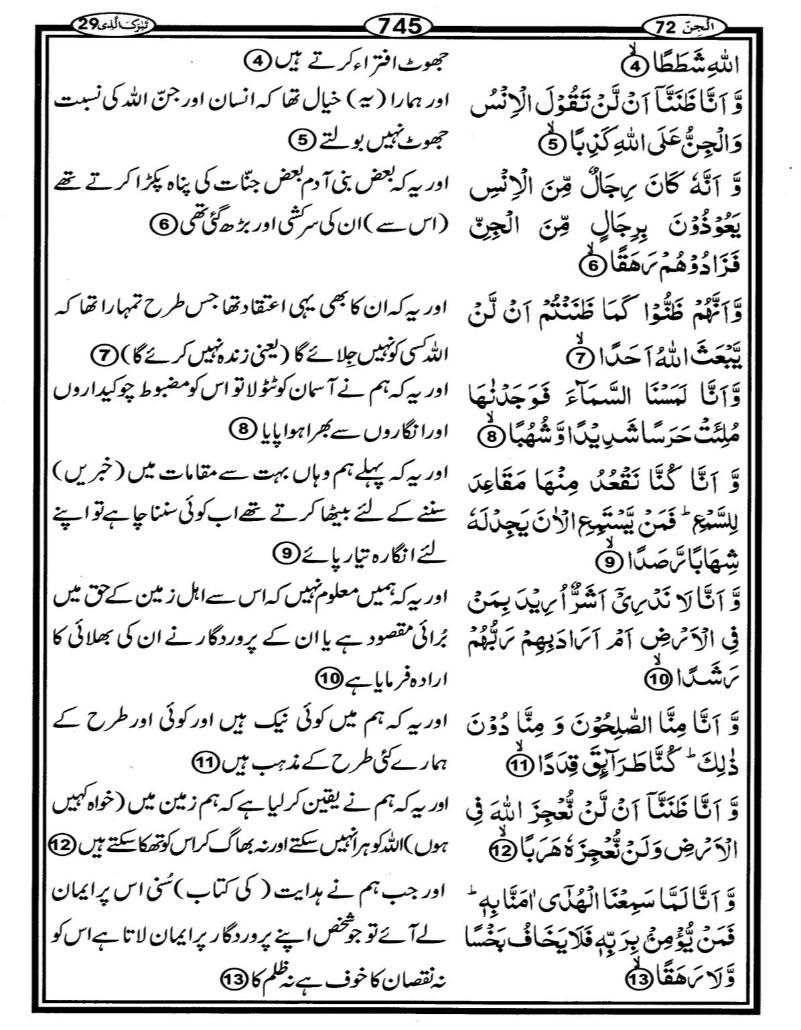 الجنّ 72
745
تبٰرک الذی 29
اللّٰهِ شَطَطًا ④
وَّ اَنَّا ظَنَنَّاۤ اَنْ لَّنْ تَقُوْلَ الْاِنْسُ
وَالْجِنُّ عَلَى اللّٰهِ كَذِبًا ⑤
وَّ اَنَّهٗ كَانَ رِجَالٌ مِّنَ الْاِنْسِ
يَعُوْذُوْنَ بِرِجَالٍ مِّنَ الْجِنِّ
فَزَادُوْهُمْ رَهَقًا ⑥
وَّاَنَّهُمْ ظَنُّوْا كَمَا ظَنَنْتُمْ اَنْ لَّنْ
يَّبْعَثَ اللّٰهُ اَحَدًا ⑦
وَّاَنَّا لَمَسْنَا السَّمَآءَ فَوَجَدْنٰهَا
مُلِئَتْ حَرَسًا شَدِيْدًا وَّشُهُبًا ⑧
وَّ اَنَّا كُنَّا نَقْعُدُ مِنْهَا مَقَاعِدَ
لِلسَّمْعِ ؕ فَمَنْ يَّسْتَمِعِ الْاٰنَ يَجِدْ لَهٗ
شِهَابًا رَّصَدًا ⑨
وَّ اَنَّا لَا نَدْرِيْۤ اَشَرٌّ اُرِيْدَ بِمَنْ
فِى الْاَرْضِ اَمْ اَرَادَ بِهِمْ رَبُّهُمْ
رَشَدًا ⑩
وَّ اَنَّا مِنَّا الصّٰلِحُوْنَ وَ مِنَّا دُوْنَ
ذٰلِكَ ؕ كُنَّا طَرَآئِقَ قِدَدًا ⑪
وَّ اَنَّا ظَنَنَّاۤ اَنْ لَّنْ نُّعْجِزَ اللّٰهَ فِى
الْاَرْضِ وَلَنْ نُّعْجِزَهٗ هَرَبًا ⑫
وَّ اَنَّا لَمَّا سَمِعْنَا الْهُدٰۤى اٰمَنَّا بِهٖ ؕ
فَمَنْ يُّؤْمِنْۢ بِرَبِّهٖ فَلَا يَخَافُ بَخْسًا
وَّلَا رَهَقًا ⑬
جھوٹ افتراء کرتے ہیں ④
اور ہمارا (یہ) خیال تھا کہ انسان اور جنّ اللہ کی نسبت
جھوٹ نہیں بولتے ⑤
اور یہ کہ بعض بنی آدم بعض جنّات کی پناہ پکڑا کرتے تھے
(اس سے) ان کی سرکشی اور بڑھ گئی تھی ⑥
اور یہ کہ ان کا بھی یہی اعتقاد تھا جس طرح تمہارا تھا کہ
اللہ کسی کو نہیں جِلائے گا (یعنی زندہ نہیں کرے گا) ⑦
اور یہ کہ ہم نے آسمان کو ٹٹولا تو اس کو مضبوط چوکیداروں
اور انگاروں سے بھرا ہوا پایا ⑧
اور یہ کہ پہلے ہم وہاں بہت سے مقامات میں (خبریں)
سننے کے لئے بیٹھا کرتے تھے اب کوئی سننا چاہے تو اپنے
لئے انگارہ تیار پائے ⑨
اور یہ کہ ہمیں معلوم نہیں کہ اس سے اہل زمین کے حق میں
بُرائی مقصود ہے یا ان کے پروردگار نے ان کی بھلائی کا
ارادہ فرمایا ہے ⑩
اور یہ کہ ہم میں کوئی نیک ہیں اور کوئی اور طرح کے
ہمارے کئی طرح کے مذہب ہیں ⑪
اور یہ کہ ہم نے یقین کر لیا ہے کہ ہم زمین میں (خواہ کہیں
ہوں) اللہ کو ہرا نہیں سکتے اور نہ بھاگ کر اس کو تھکا سکتے ہیں ⑫
اور جب ہم نے ہدایت (کی کتاب) سُنی اس پر ایمان
لے آئے تو جو شخص اپنے پروردگار پر ایمان لاتا ہے اس کو
نہ نقصان کا خوف ہے نہ ظلم کا ⑬